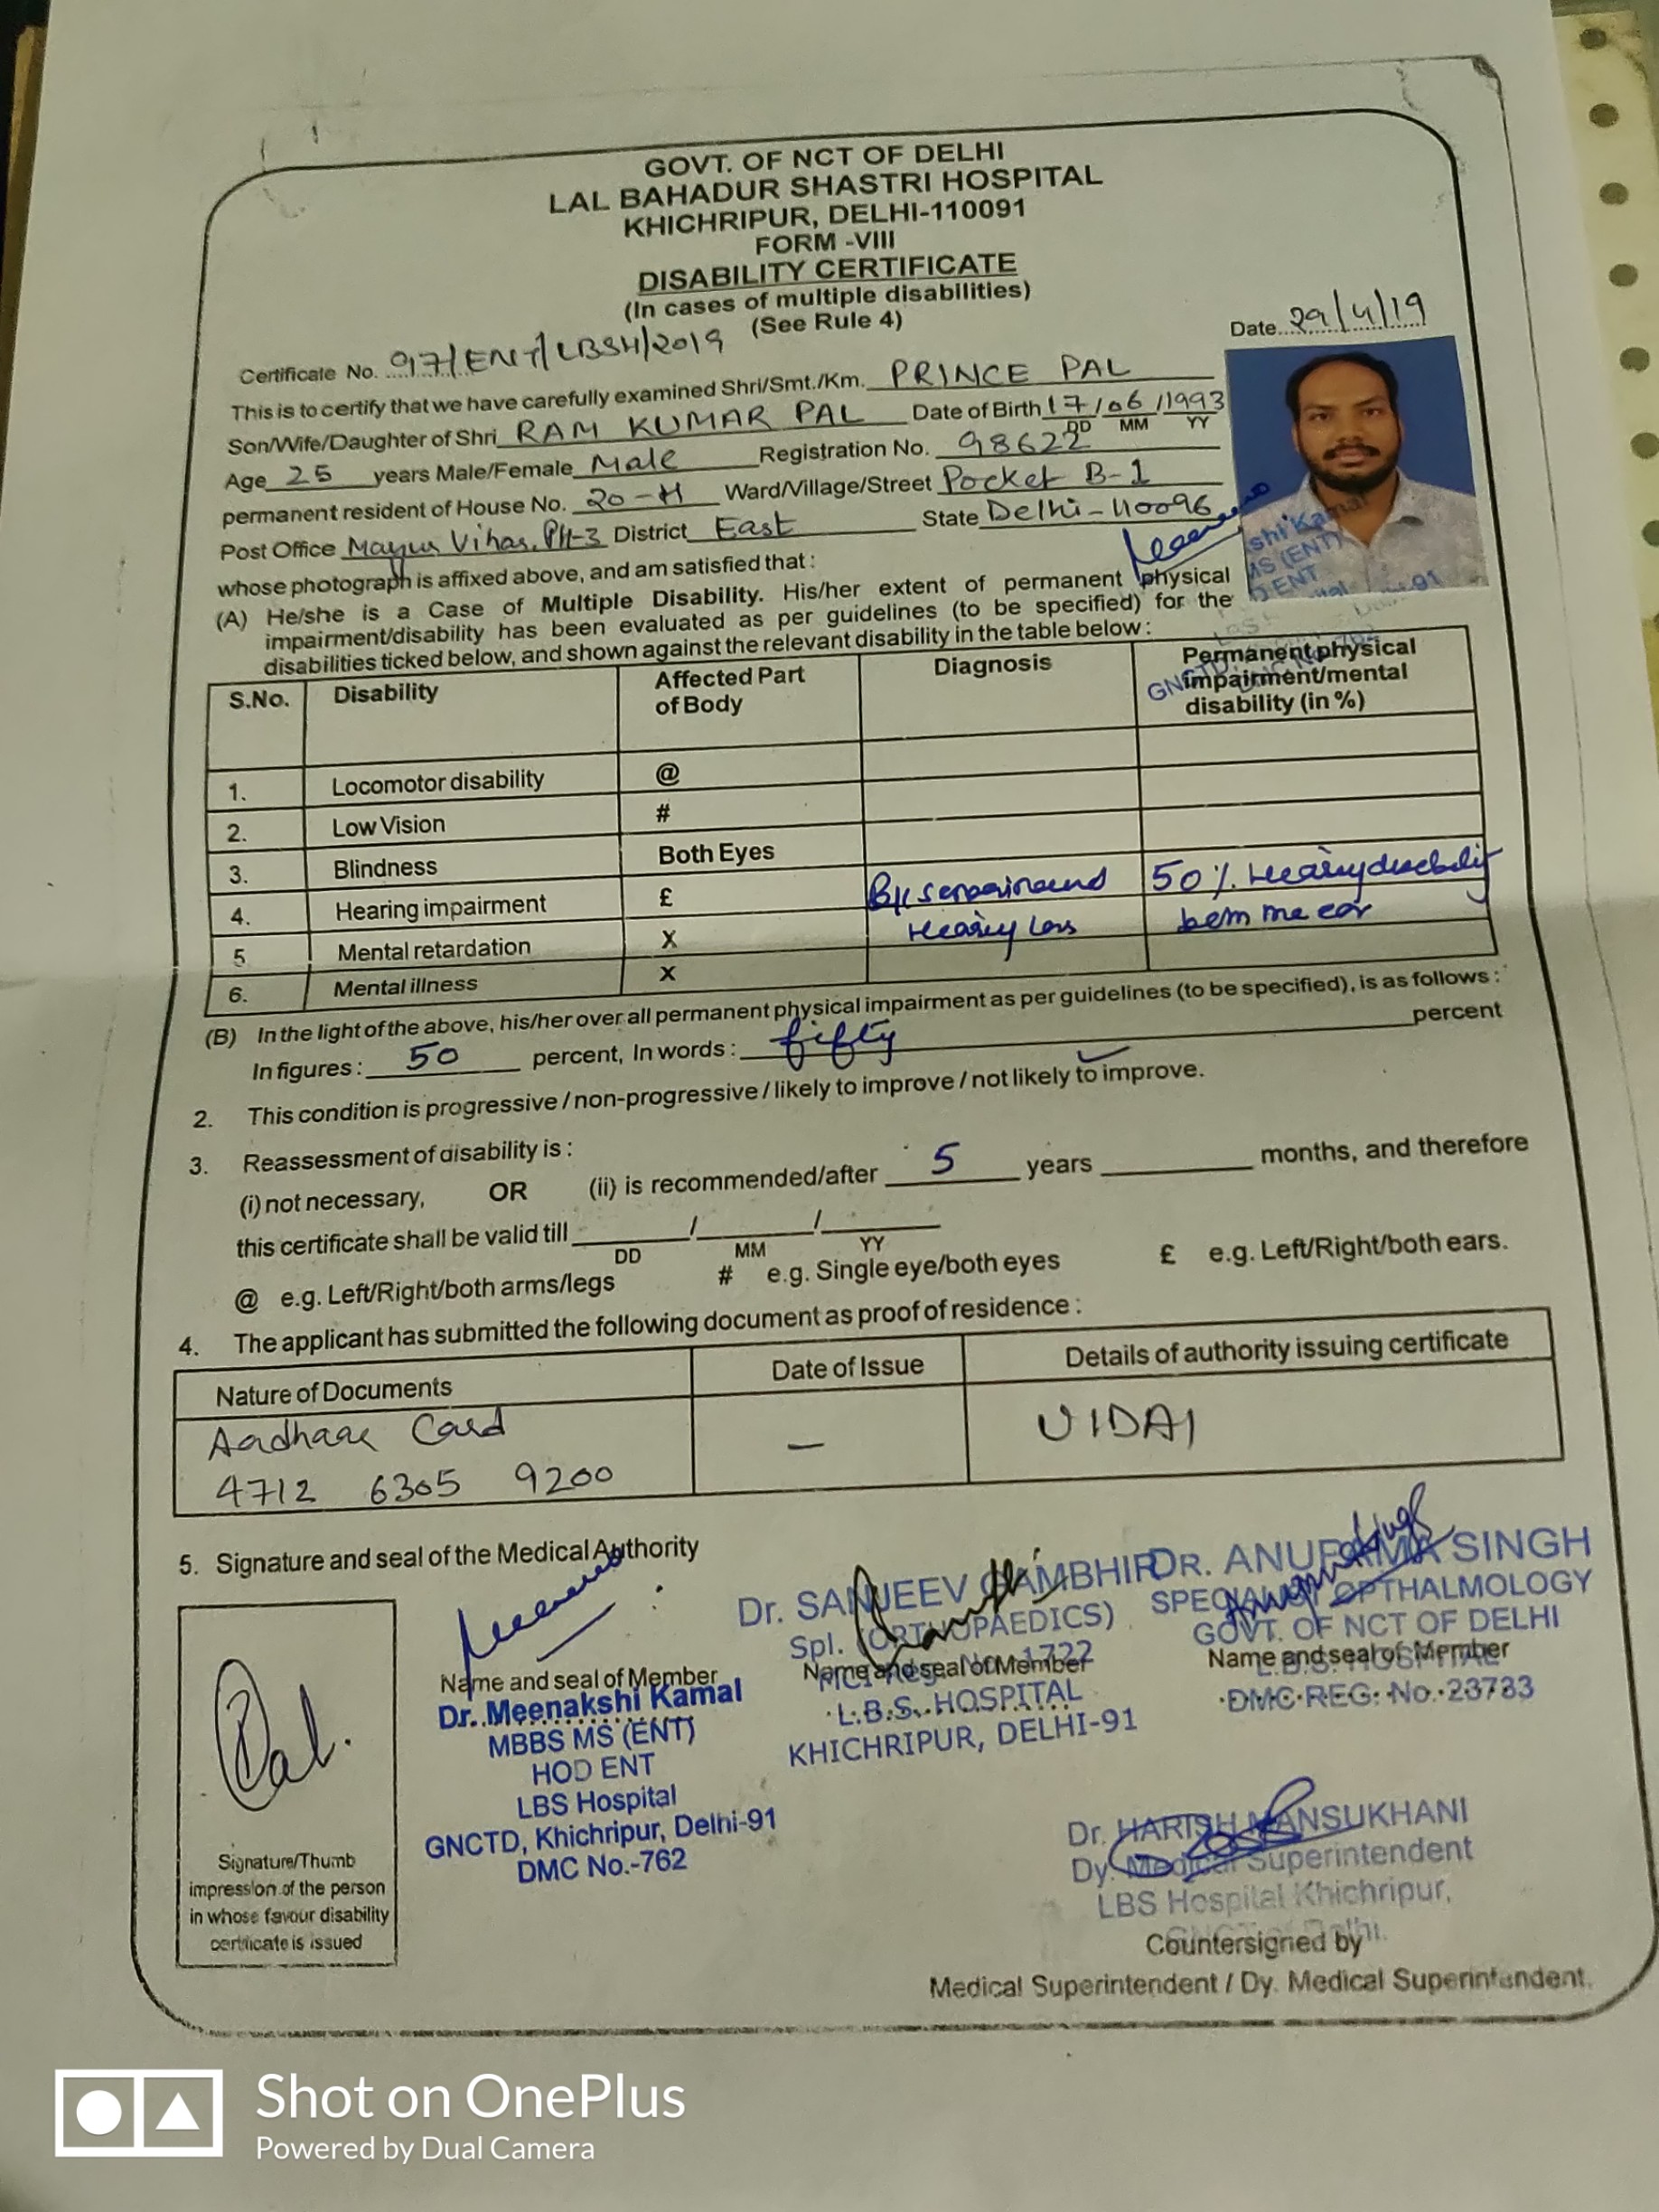 GOVT. OF NCT OF DELHI
LAL BAHADUR SHASTRI HOSPITAL
KHICHRIPUR, DELHI-110091
FORM -VIII
DISABILITY CERTIFICATE
(In cases of multiple disabilities)
(See Rule 4)
Date..29/4/19
Certificate No. 97/ENT/LBSH/2019
This is to certify that we have carefully examined Shri/Smt./Km. PRINCE PAL
Son/Wife/Daughter of Shri RAM KUMAR PAL Date of Birth 17/06/1993
DD MM YY
Age 25 years Male/Female Male Registration No. 98622
permanent resident of House No. 20-H Ward/Village/Street Pocket B-1
Post Office Mayur Vihar, PH-3 District East State Delhi-110096
whose photograph is affixed above, and am satisfied that :
(A) He/she is a Case of Multiple Disability. His/her extent of permanent physical
impairment/disability has been evaluated as per guidelines (to be specified) for the
disabilities ticked below, and shown against the relevant disability in the table below :
S.No. Disability Affected Part of Body Diagnosis Permanent physical impairment/mental disability (in %)
1. Locomotor disability @
2. Low Vision #
3. Blindness Both Eyes
4. Hearing impairment £ 50 %. Hearing
5 Mental retardation X Hearing Loss
6. Mental illness X
(B) In the light of the above, his/her over all permanent physical impairment as per guidelines (to be specified), is as follows :
In figures : 50 percent, In words : fifty percent
2. This condition is progressive / non-progressive / likely to improve / not likely to improve.
3. Reassessment of disability is :
(i) not necessary, OR (ii) is recommended/after 5 years months, and therefore
this certificate shall be valid till / /
DD MM YY
@ e.g. Left/Right/both arms/legs # e.g. Single eye/both eyes £ e.g. Left/Right/both ears.
4. The applicant has submitted the following document as proof of residence :
Nature of Documents Date of Issue Details of authority issuing certificate
Aadhaar Card — UIDAI
4712 6305 9200
5. Signature and seal of the Medical Authority
Pal.
Signature/Thumb
impression of the person
in whose favour disability
certificate is issued
Name and seal of Member
Dr. Meenakshi Kamal
MBBS MS (ENT)
HOD ENT
LBS Hospital
GNCTD, Khichripur, Delhi-91
DMC No.-762
Dr. SANJEEV GAMBHIR
Spl. (ORTHOPAEDICS)
MCI Reg. No. 1722
Name and seal of Member
L.B.S. HOSPITAL
KHICHRIPUR, DELHI-91
DR. ANUPAMA SINGH
SPECIALIST OPTHALMOLOGY
GOVT. OF NCT OF DELHI
Name and seal of Member
L.B.S. HOSPITAL
DMC REG. No. 23733
Dr. HARISH MANSUKHANI
Dy. Medical Superintendent
LBS Hospital Khichripur,
Countersigned by
Medical Superintendent / Dy. Medical Superintendent.
Shot on OnePlus
Powered by Dual Camera